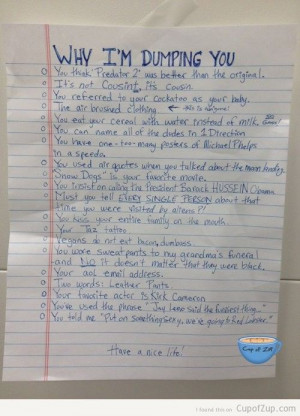 WHY I'M DUMPING YOU
You think "Predator 2" was better than the original.
It's not Cousint, it's cousin.
You referred to your cockatoo as your baby.
The air brushed clothing. ← this is
You eat your cereal with water instead of milk.
You can name all of the dudes in 1 Direction
You have one-too-many posters of Michael Phelps
in a speedo.
You used air quotes when you talked about the moon landing
"Snow Dogs" is your favorite movie.
You insist on calling the President Barack HUSSEIN Obama
Must you tell EVERY SINGLE PERSON about that
time you were visited by aliens?!
You kiss your entire family on the mouth
Your Taz tattoo
Vegans do not eat bacon, dumbass.
You wore sweatpants to my grandma's funeral
and NO it doesn't matter that they were black.
Your aol email address.
Two words: Leather Pants.
Your favorite actor is Kirk Cameron
You've used the phrase "Jay Leno said the funniest thing..."
You told me "Put on something sexy, we're going to Red Lobster."
Have a nice life!
Cup of ZUP
I found this on CupofZup.com